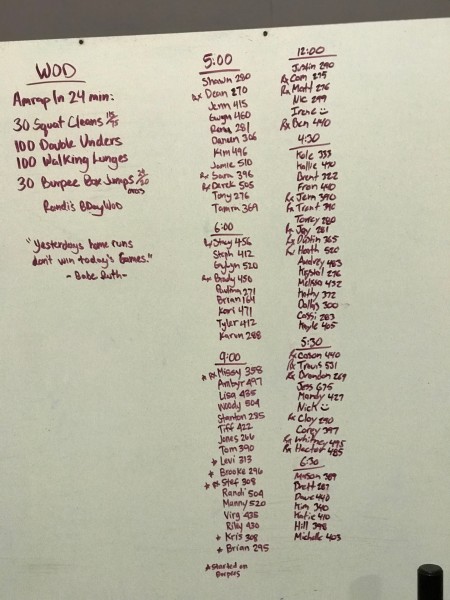 WOD
Amrap In 24 min:
30 Squat Cleans
100 Double Unders
100 Walking Lunges
30 Burpee Box Jumps
Randi's BDay WOD
"Yesterdays home runs
don't win today's Games."
- Babe Ruth -
5:00
Shawn 280
Rx Dean 270
Jenn 415
Gwyn 460
281
306
Kim 496
Jamie 510
Rx Sara 396
Rx Derek 505
Tony 276
Tamra 369
6:00
Rx Stacy 456
Steph 412
520
Rx Brady 450
271
Brian 164
Kori 471
Tyler 412
Karun 288
9:00
* Rx Missy 358
Ambyr 497
Lisa 435
Woody 504
Stanton 285
Tiff 422
Jones 266
Tom 390
* Levi 313
* Brooke 296
* Rx Stef 308
Randi 504
Manny 520
Virg 435
Riley 430
* Kris 308
* Brian 295
* Started on
Burpees
12:00
Justin 290
Rx Cam 275
Rx Matt 276
Nic 299
Irene
Rx Ben 440
4:30
Kole 333
Kallie 440
Brent 322
Fran 440
Rx Jem 390
Rx Trent 390
Torrey 280
Rx Jay 281
Rx Dustin 365
Rx Heath 520
Audrey 483
Krystal 276
Melissa 432
Hatty 372
Dallas 300
Cassi 283
Kayle 405
5:30
Rx Cason 440
Rx Travis 531
Rx Brandon 269
Jess 675
Mandy 427
Nick
Rx Cloy 290
Corey 397
Rx Whitney 495
Rx Hector 485
6:30
Mason 389
Brett 287
Dave 440
Kim 340
Katie 410
Hill 398
Michelle 403